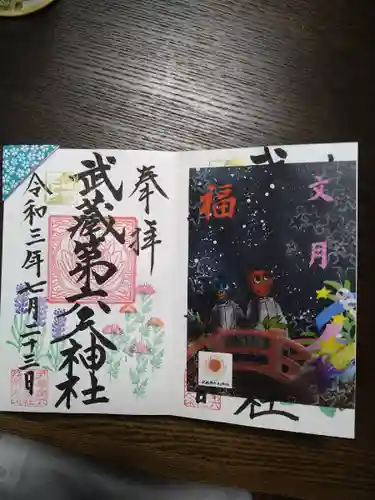 奉拝
武蔵第六天神社
令和三年七月二十三日
文月
福